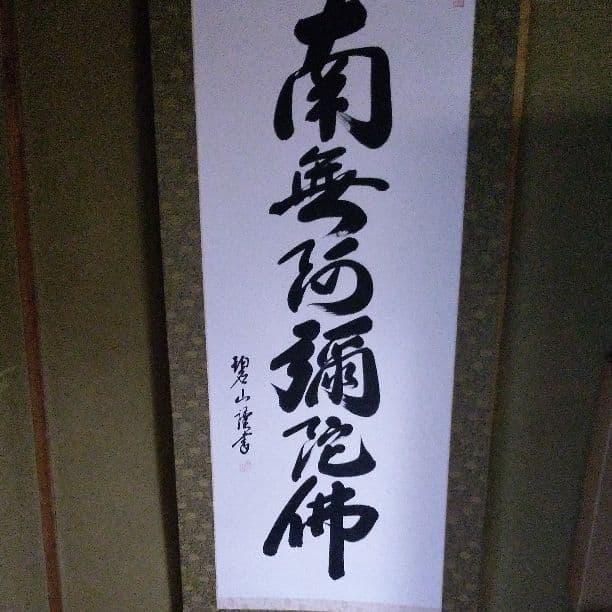 南無阿彌陀佛
碧山謹書